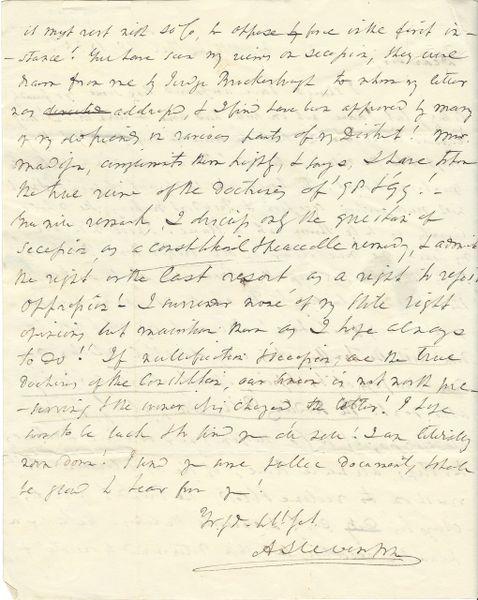 it must rest not so to, to oppose by force in the first in-
stance! You have seen my views on secession, they were
drawn from me by Judge Brockenbrough, to whom my letter
was directed address'd, & I find have been approved by many
of my old friends in various parts of my District! Mr.
Madison, compliments them highly, & says, I have taken
the true view of the Doctrines of '98 & '99! -
You will remark, I discuss only the question of
Secession as a constitutional & peaceable remedy, & admit
the right in the last resort, as a right to resist
oppression! - I surrender none of my State right
opinions but maintain them as I hope always
to do! If nullification & secession, are the true
doctrines of the Constitution, our union is not worth pre-
-serving & the sooner it is changed the better! I hope
soon to be back & to find you all well! I am literally
worn down! I send you some public Documents & shall
be glad to hear from you!
Yr fd. & ob st.
A Stevenson